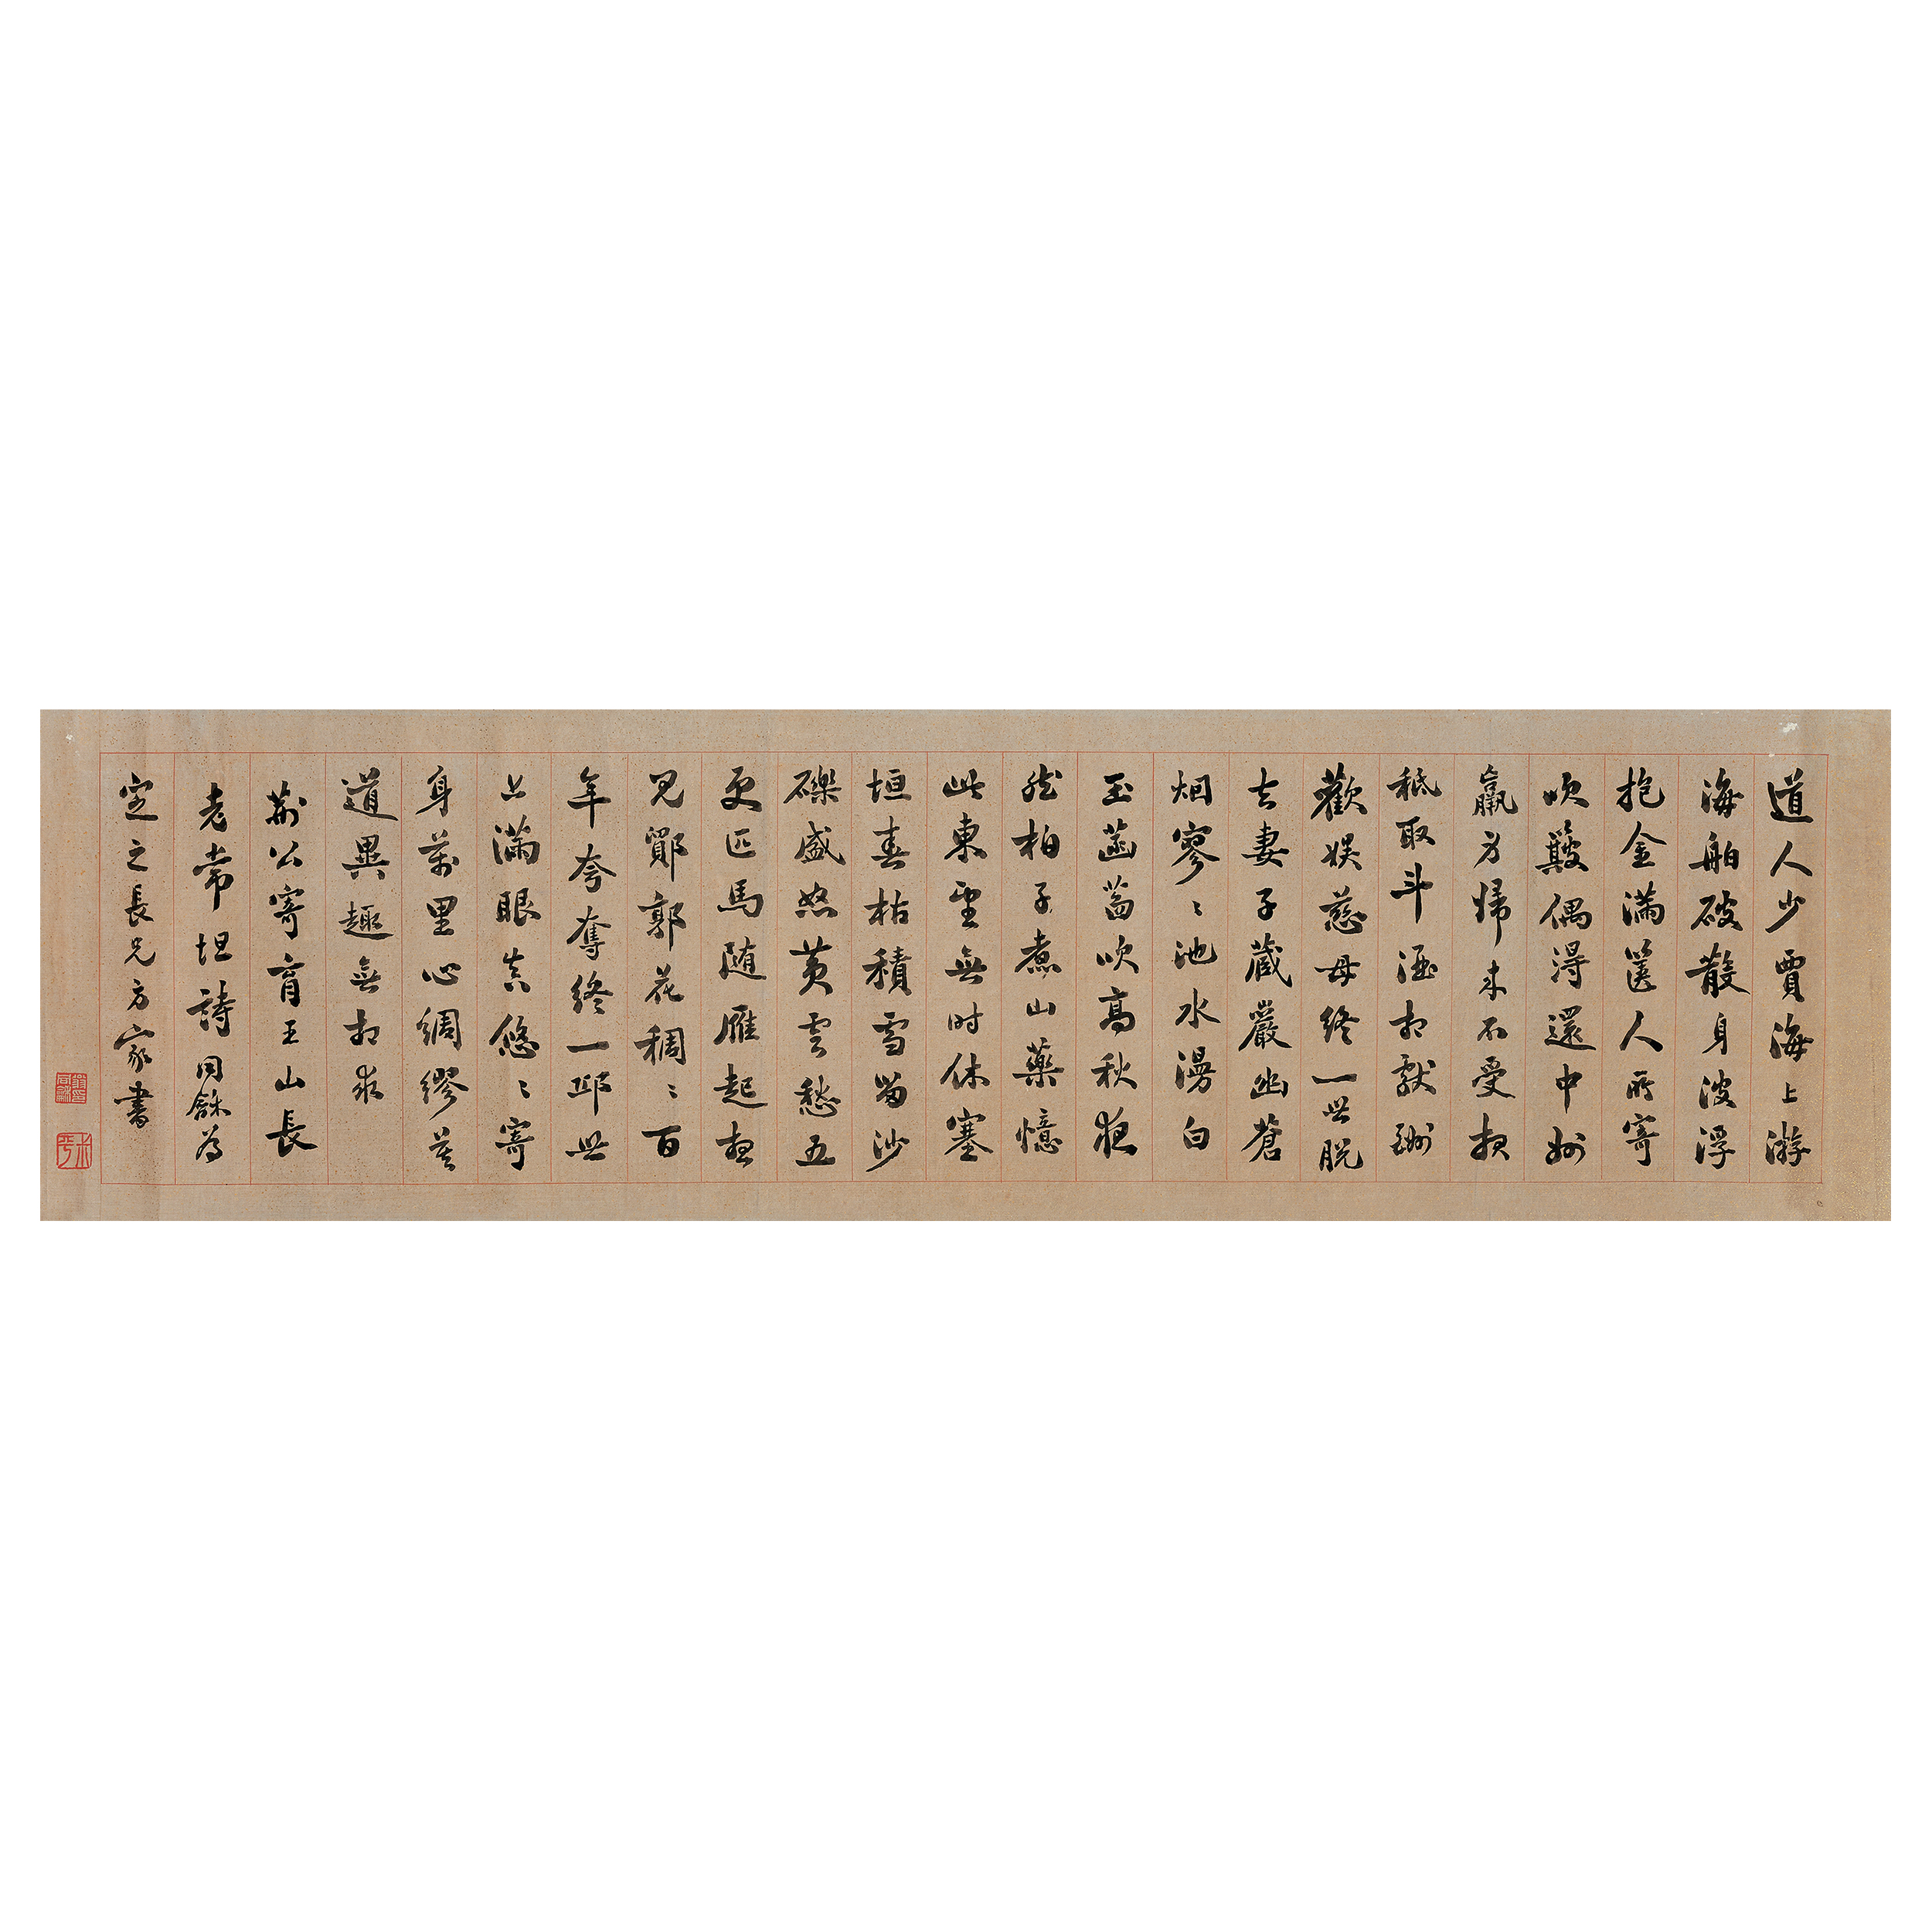 道人少賈海上游
海舶破散身波浮
抱金滿篋人所寄
吹簸偶得還中州
羸身歸來不受報
秪取斗酒相獻酬
歡娛慈母終一世脱
去妻子藏巖幽蒼
烟寥〻池水漫白
玉菡萏吹高秋夜
然柏子煮山藥憶
此東望無時休塞
垣春枯積雪留沙
礫盛怒黃雲愁五
更匹馬隨雁起想
見鄮郭花稠〻百
年夸奪終一邱世
上滿眼真悠〻寄
身萬里心綢繆莫
道異趣無相求
荆公寄育王山長
老常坦詩同龢為
定之長兄方家書
翁同龢印
叔平